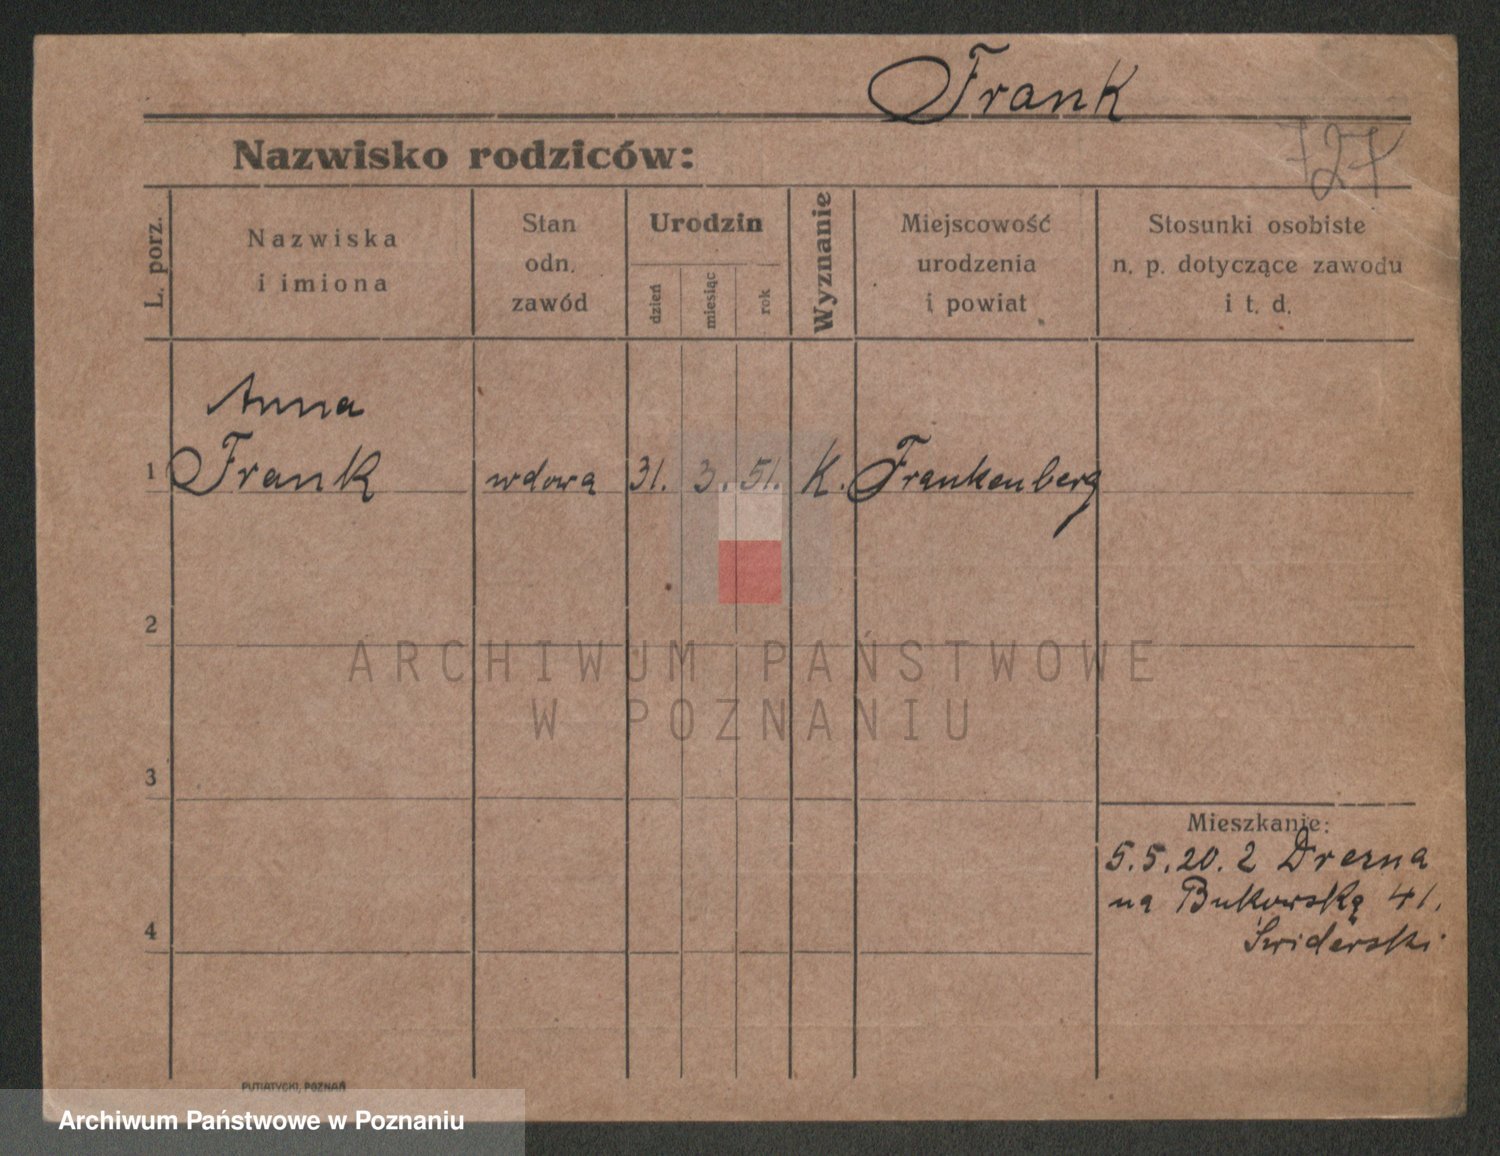 Frank
727
Nazwisko rodziców:
L. porz.
Nazwiska
i imiona
Stan
odn.
zawód
Urodzin
dzień
miesiąc
rok
Wyznanie
Miejscowość
urodzenia
i powiat
Stosunki osobiste
n. p. dotyczące zawodu
i t. d.
Anna
1 Frank wdowa 31. 3. 51. K. Frankenberg
2
ARCHIWUM PAŃSTWOWE
W POZNANIU
3
Mieszkanie:
5.5.20. 2 Drezna
na Bukowską 41.
4
Świderski
PUTIATYCKI, POZNAŃ
Archiwum Państwowe w Poznaniu